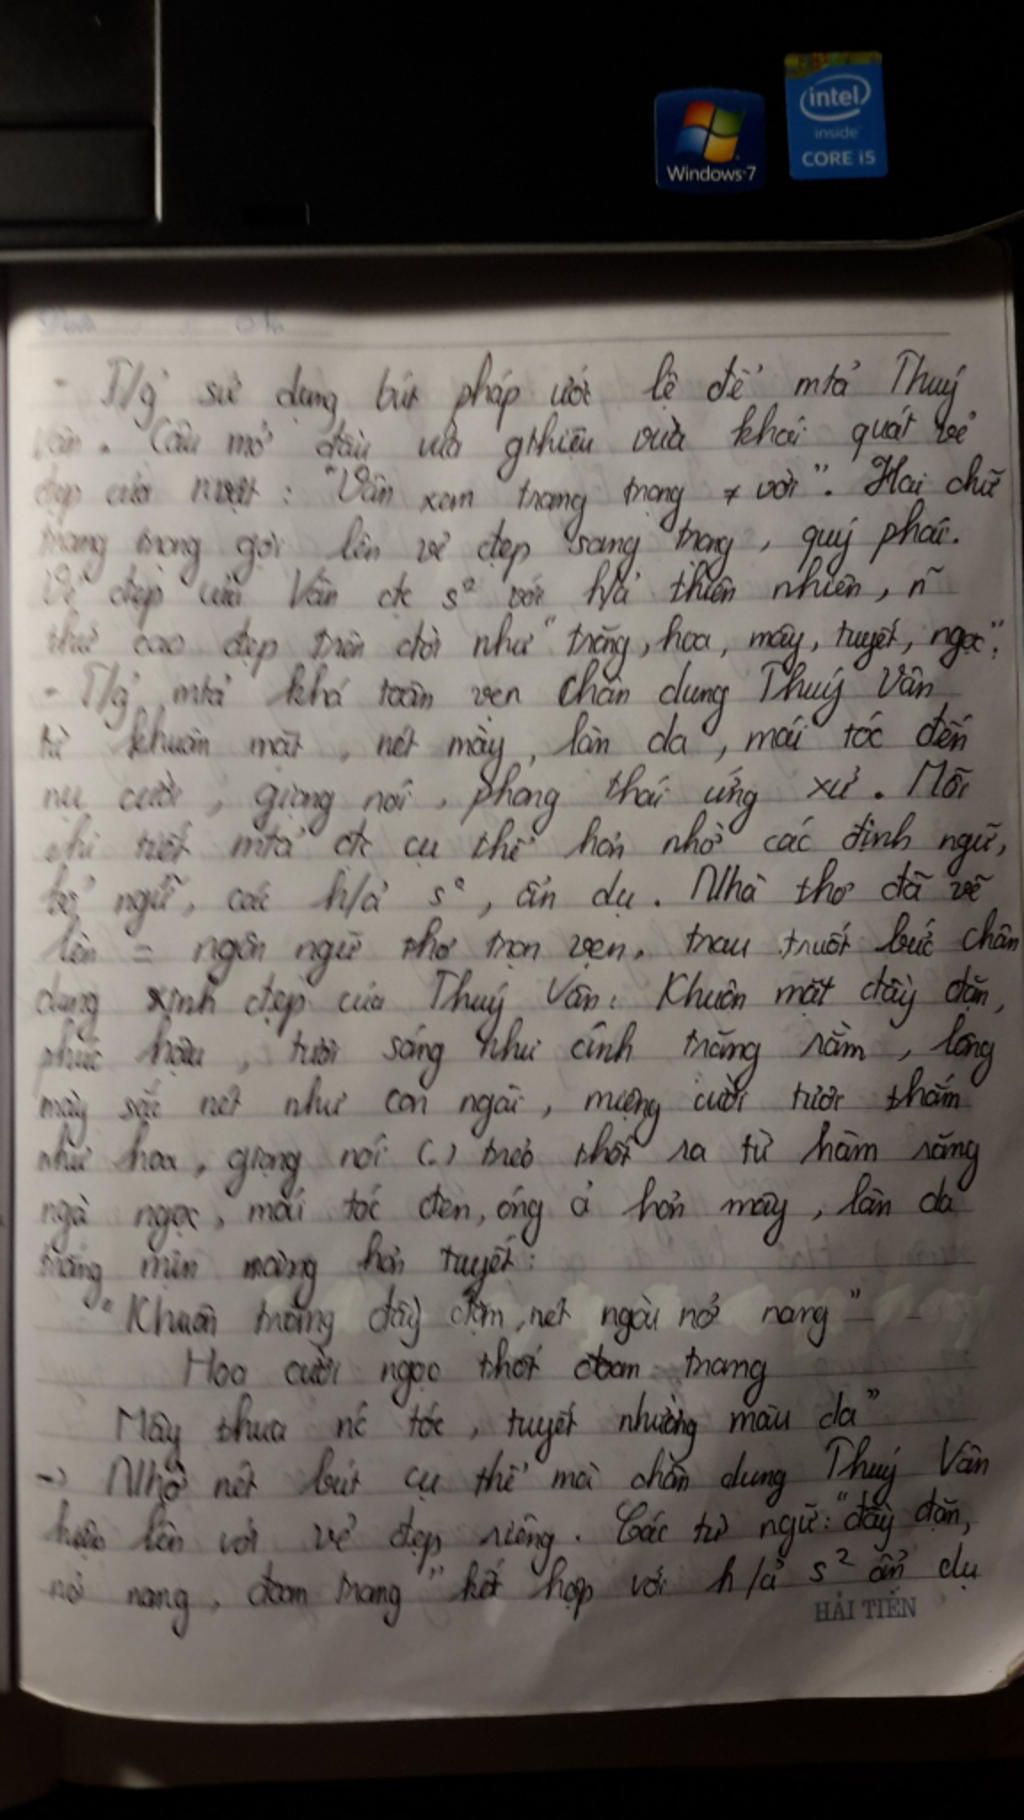 intel
inside
CORE i5
Windows 7
- T/g sử dụng bút pháp ước lệ để mtả Thuý
Vân. Câu mở đầu vừa gthiệu vừa khái quát vẻ
đẹp của nvật: "Vân xem trang trọng ≠ vời". Hai chữ
trang trọng gợi lên vẻ đẹp sang trọng, quý phái.
Vẻ đẹp của Vân đc s² với h/ả thiên nhiên, n~
thứ cao đẹp trên đời như "trăng, hoa, mây, tuyết, ngọc".
- T/g mtả khá toàn vẹn chân dung Thuý Vân
từ khuôn mặt, nét mày, làn da, mái tóc đến
nụ cười, giọng nói, phong thái ứng xử. Mỗi
chi tiết mtả đc cụ thể hơn nhờ các định ngữ,
bổ ngữ, các h/ả s², ẩn dụ. Nhà thơ đã vẽ
lên = ngôn ngữ thơ trọn vẹn, trau truốt bức chân
dung xinh đẹp của Thuý Vân: Khuôn mặt đầy đặn,
phúc hậu, tươi sáng như ánh trăng rằm, lông
mày sắc nét như con ngài, miệng cười tươi thắm
như hoa, giọng nói (.) trẻo thốt ra từ hàm răng
ngà ngọc, mái tóc đen, óng ả hơn mây, làn da
trắng mịn màng hơn tuyết:
"Khuôn trăng đầy đặn, nét ngài nở nang"
Hoa cười ngọc thốt đoan trang
Mây thua nc tóc, tuyết nhường màu da"
-> Nhờ nét bút cụ thể mà chân dung Thuý Vân
hiện lên với vẻ đẹp riêng. Các từ ngữ: "đầy đặn,
nở nang, đoan trang" kết hợp với h/ả s² ẩn dụ
HẢI TIẾN